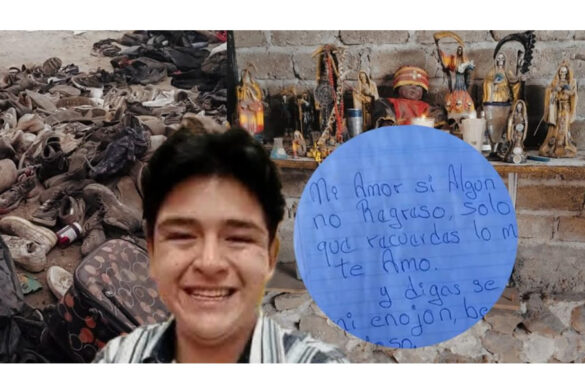 Mi Amor si Algon
no Regreso, solo
que recuerdas lo m
te Amo.
y digas se
mi enojon, be